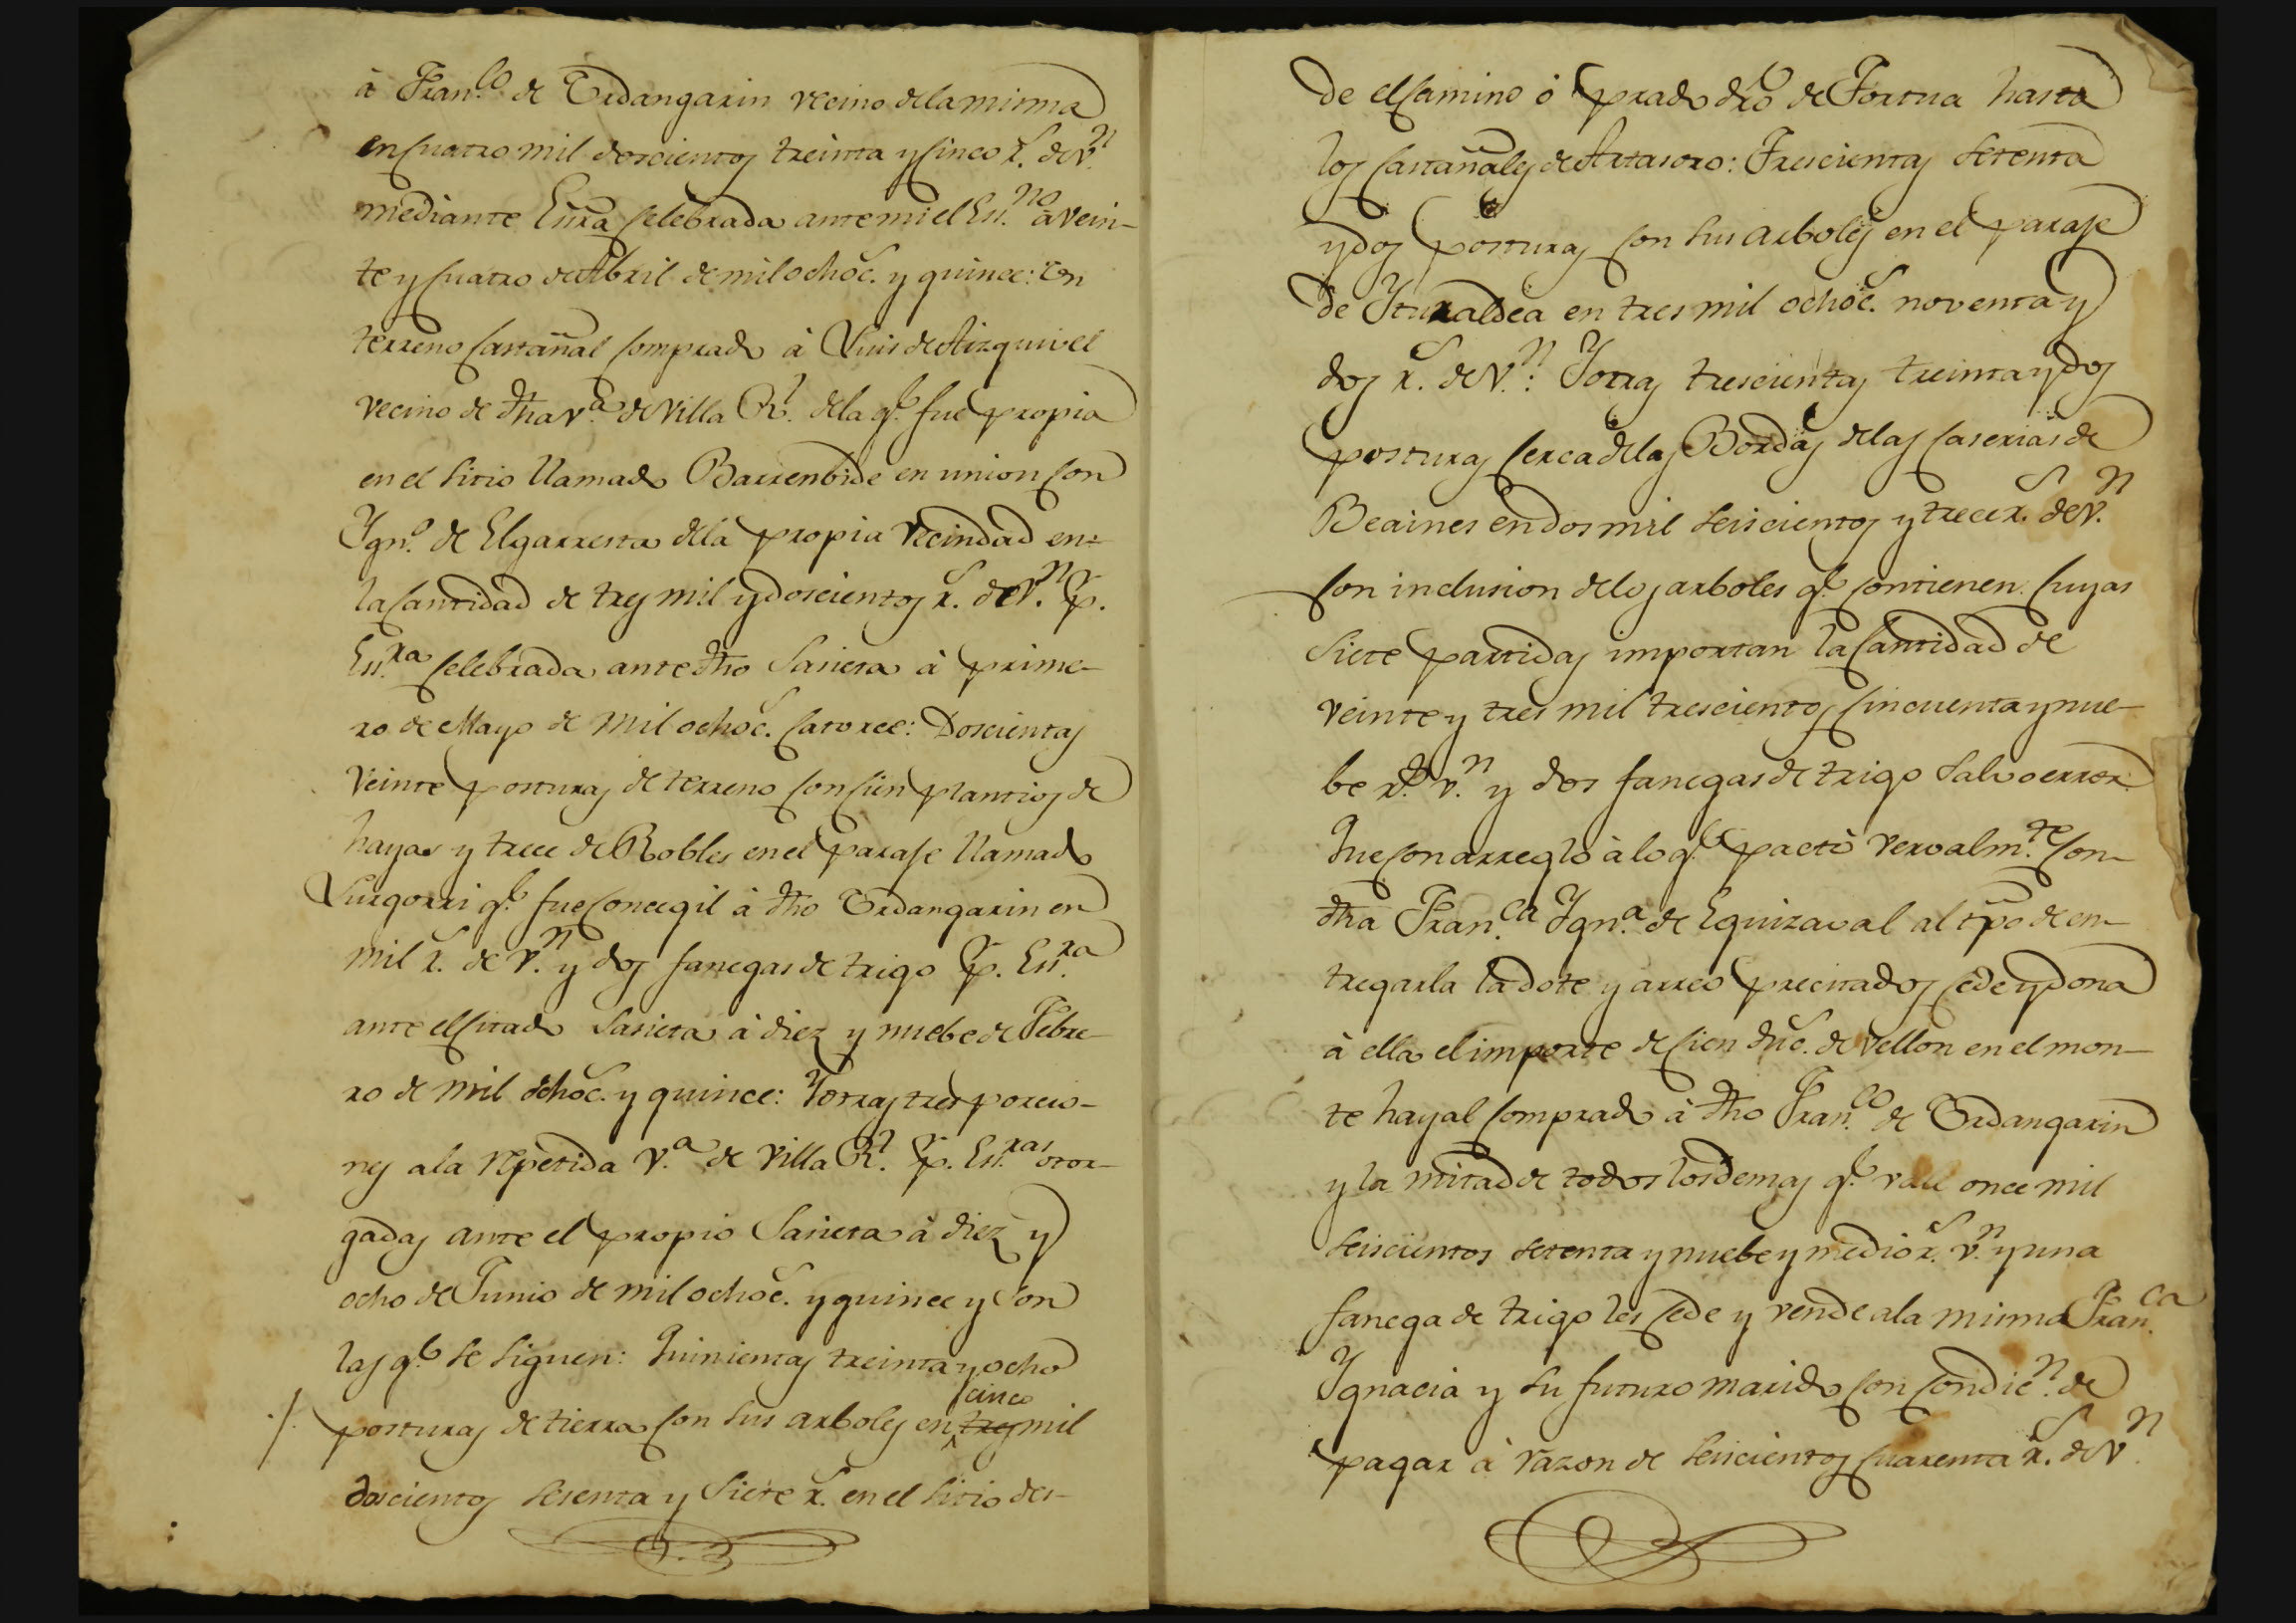 à Fran.co de Urdangarin vecino de la misma
en cuatro mil doscientos treinta y cinco r.s de v.n
mediante Esura celebrada ante mi el Es.no a vein-
te y cuatro de Abril de mil ochoc.s y quince: Un
terreno castañal comprado à Luis de Aizquivel
vecino de dha v.a de Villa R.l de la q.e fue propia
en el sitio llamado Barrenbide en union con
Ygn.o de Elgarresta de la propia vecindad en
la cantidad de tres mil y doscientos r.s de v.n p.r
Es.ra celebrada ante dho Sasieta à prime-
ro de Mayo de mil ochoc.s catorce: Doscientas
veinte posturas de terreno con cien plantios de
hayas y trece de Robles en el paraje llamado
Lurgorri q.e fue concegil à dho Urdangarin en
mil r.s de v.n y dos fanegas de trigo p.r Es.ra
ante el citado Sasieta à diez y nuebe de Febre-
ro de mil ochoc.s y quince: Y otras tres porcio-
nes a la repetida v.a de Villa R.l p.r Es.ras otor-
gadas ante el propio Sasieta à diez y
ocho de Junio de mil ochoc.s y quince y son
las q.e se siguen: Quinientas treinta y ocho
cinco
posturas de tierra con sus arboles en tres mil
doscientos sesenta y siete r.s en el sitio des-
de el camino ó prado dho de Fortua hasta
los castañales de Artasoro: Trescientas setenta
y dos posturas con sus arboles en el paraje
de Yturaldea en tres mil ochoc.s noventa y
dos r.s de v.n: Y otras trescientas treinta y dos
posturas cerca de las Bordas de las caserias de
Beaines en dos mil seiscientos y trece r.s de v.n
con inclusion de los arboles q.e contienen. Cuyas
siete partidas importan la cantidad de
veinte y tres mil trescientos cincuenta y nue-
be r.s v.n y dos fanegas de trigo salvo error.
Que con arreglo à lo q.e pactò vervalm.te con
dha Fran.ca Ygn.a de Eguizaval al tpo de en-
tregarla la dote y arreo precitados cede y dona
à ella el importe de cien duc.s de vellon en el mon-
te hayal comprado à dho Fran.co de Urdangarin
y la mitad de todos los demas q.e vale once mil
seiscientos setenta y nuebe y medio r.s v.n y una
fanega de trigo les cede y vende a la misma Fran.ca
Ygnacia y su futuro marido con condic.n de
pagar à razon de seiscientos cuarenta r.s de v.n